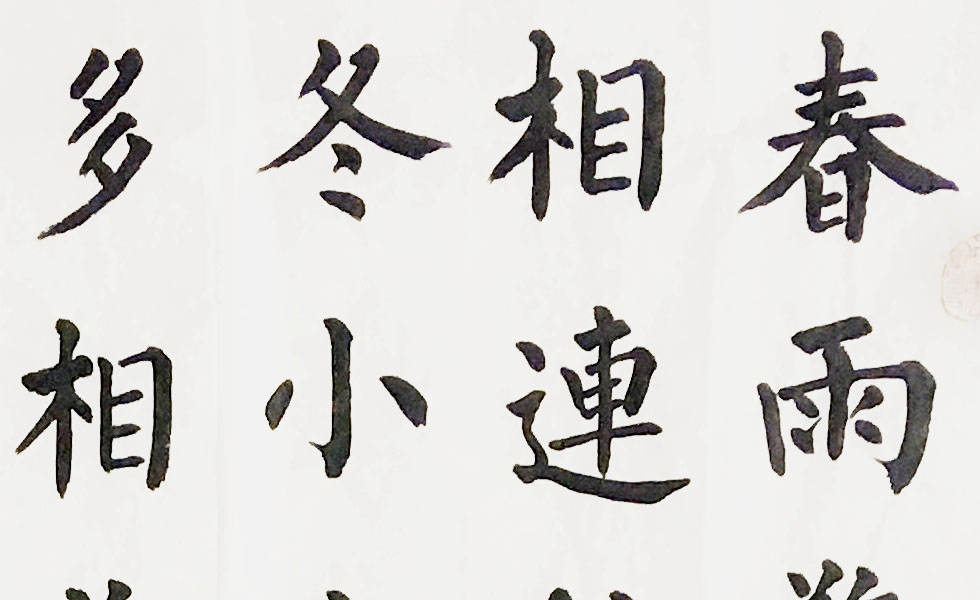 春雨
相連
冬小
多相